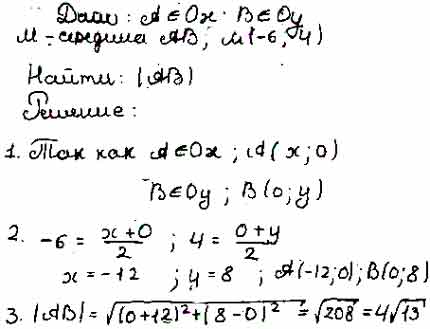 Дано: A∈Ox. B∈Oy
M - середина AB; M(-6, 4)
Найти: |AB|
Решение:
1. Так как A∈Ox ; A(x; 0)
B∈Oy ; B(0; y)
2. -6 = (x+0)/2 ; 4 = (0+y)/2
x = -12 ; y = 8 ; A(-12; 0); B(0; 8)
3. |AB| = √((0+12)²+(8-0)²) = √208 = 4√13